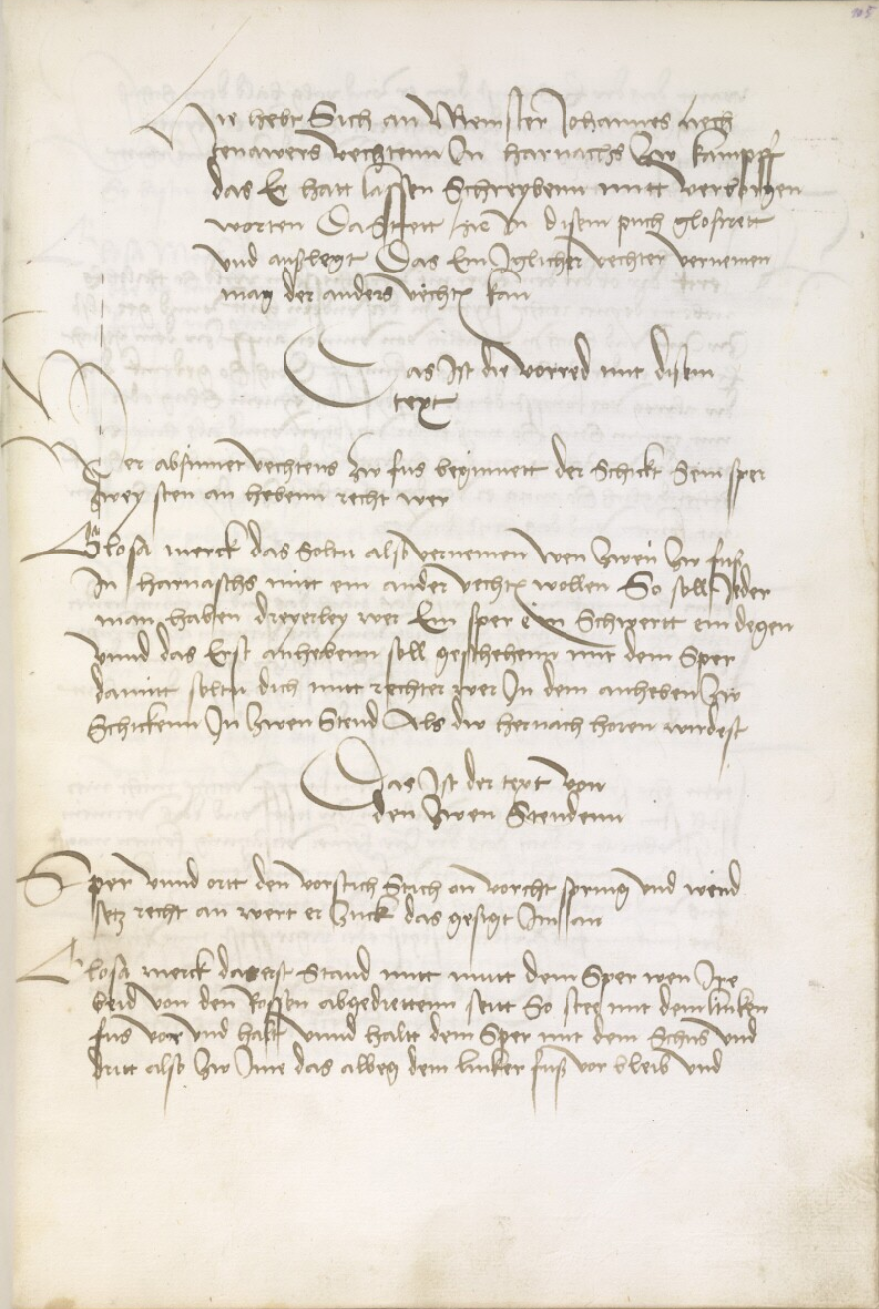 105
Hie hebt Sich an Meinster Johannes liech
tenawers vechtenn In harnachs zw kampff
das Er hatt lassen Schreybenn mitt verborgen
worten Das stett hie In disem puch glosirett
vnd ausslegt Das Ein Iglicher vechter vernemen
mag der anders vechten kan
Das Ist die vorred mit disem
text
Wer absinnet vechtens zw fus beginnett der Schickt Sein sper
zwey sten an hebenn recht wer
Glosa merck das Soltu also vernemen wen zwen zw fuß
In harnaschs mitt ein ander vechten wollen So soll Jeder
man haben dreyerley wer Ein sper ein Schwertt ein degen
vnnd das Erst anhebenn soll geschehenn mit dem Sper
damitt soltu dich mitt rechter wer In dem anheben zw
Schickenn In zwen Stend Als dw hernach horen wirdest
Das Ist der text von
den zwen Stendenn
Sper vnnd ortt den vorstich Stich an vorcht spring vnd wind
setz recht an wert er zuck das gesigt Im an
Glosa merck das erst Stand mitt mitt dem Sper wen Ire
beid von den Rossen abgedrettenn seitt So stee mit dem lincken
fus vor vnd halt vnnd haltt dem Sper mit dem Schus vnd
dritt also zw Ime das albeg dem lincker fuß vor bleib vnd